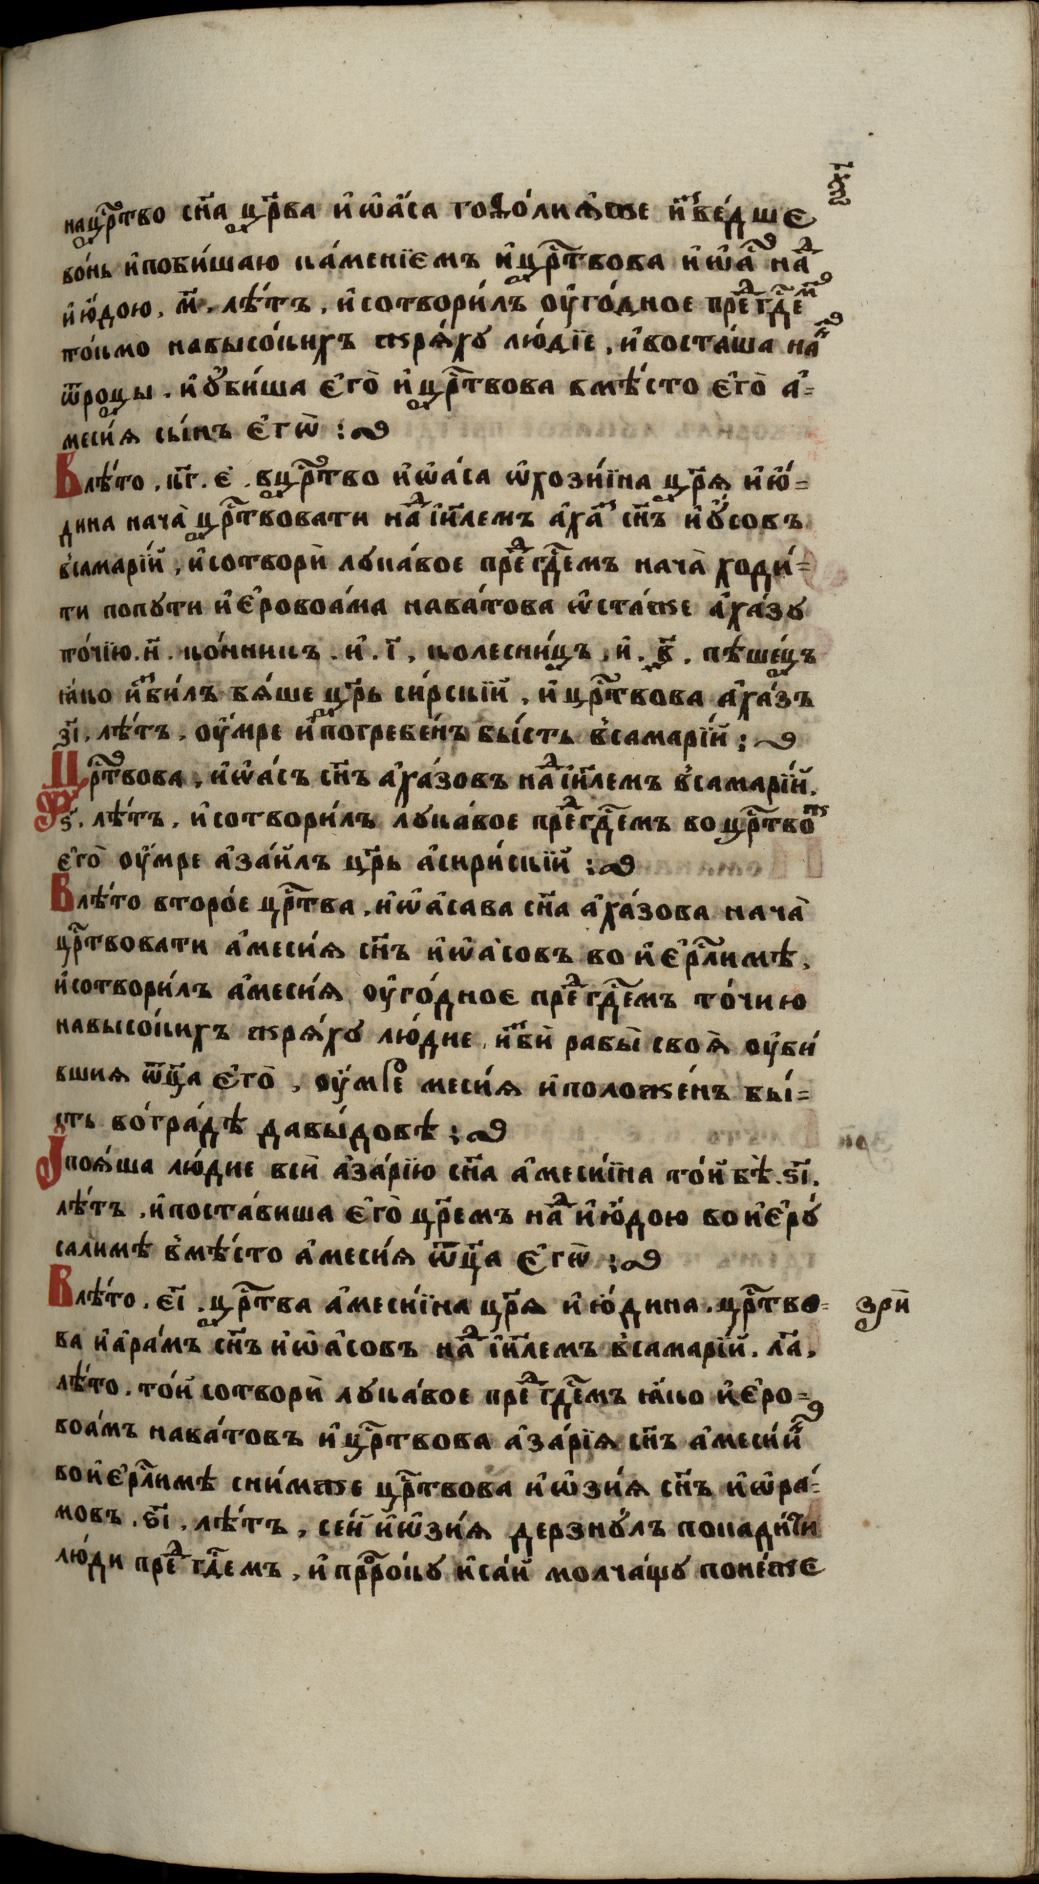 нацр҃тво сн҃а цр҃ва и҆ѡа҆са гоѳо́лиꙗ҆же и҆зве́дше
во́нь и҆поби́шаю ка́менїемъ и҆цр҃твова и҆ѡа҆с над
и҆ю҆дою. м҃. лѣ́тъ, и҆сотвори́лъ оу҆го́дное предгд҇емъ
то́кмо навысо́кихъ жрѧ́ху лю́дїе, и҆воста́ша нань
ѿроцы. и҆оу҆би́ша є҆го̀ и҆цр҃твова вмѣ́сто є҆го̀ а҆-
меси́ꙗ сы́нъ є҆гѡ̀ :
Влѣ́то. кг҃. є҆. вцр҃тво и҆ѡа́са ѡ҆хозі́ина цр҃ѧ и҆ю҆́-
дина нача̀ цр҃твовати над і҆и҃лемъ а҆ха́з сн҃ъ и҆ѹ҆совъ
в̾самарі́й, и҆сотворѝ лука́вое предгд҇емъ нача̀ ходи́-
ти попути и҆є҆ровоа́ма нава́това ѡ҆ста́же а҆ха́зу
то́чїю. н҃. ко́нникъ. и҆. і҃, колесни́цъ, и҆. в҃. пѣше́цъ
ꙗ҆́ко и҆зби́лъ бѧ́ше цр҃ь си́рскїй, и҆цр҃твова а҆ха́зъ
зі҃. лѣ́тъ, оу҆́мре и҆погребе́нъ бы́сть в̾самарі́й :
Цр҃твова, и҆ѡа́съ сн҃ъ а҆ха́зовъ над і҆и҃лемъ в̾самарі́й.
ѕ҃. лѣ́тъ, и҆сотвори́лъ лука́вое предгд҇емъ воцр҃твож
є҆го̀ оу҆́мре а҆за́йлъ цр҃ь а҆сири́скїй :
Влѣ́то второ́е цр҃тва, и҆ѡа҆сава сн҃а а҆ха́зова нача̀
цр҃твовати а҆меси́ꙗ сн҃ъ и҆ѡа҆совъ во и҆є҆рл҃имѣ,
и҆сотвори́лъ а҆меси́ꙗ оу҆го́дное предгд҇емъ то́чию
навысо́кихъ жрѧ́ху лю́дие, и҆збѝ рабы̀ своѧ̀ оу҆би́
вшиꙗ ѿц҃а є҆го̀, оу҆́мре меси́ꙗ и҆положе́нъ бы́-
сть во́гра́дѣ давы́довѣ :
Іпоꙗ́ша лю́дие всѝ а҆за́рїю сн҃а а҆месиі́на то́й бѣ̀. ѕі҃.
лѣ́тъ, и҆поста́виша є҆го̀ цр҃емъ над и҆ю҆дою во и҆є҆ру́
салимѣ в̾мѣ́сто а҆меси́ꙗ ѿц҃а є҆гѡ̀ :
Влѣ́то. єі҃. цр҃тва а҆месиі́на цр҃ѧ и҆ю҆́дина. цр҃тво-
зрѝ
ва и҆а҆ра́мъ сн҃ъ и҆ѡа҆совъ над і҆и҃лемъ в̾самарі́й. ла҃,
лѣ́то. то́й сотворѝ лука́вое предгд҇емъ ꙗ҆́ко и҆є҆ро-
воа́мъ нава́товъ и҆цр҃твова а҆за́рїꙗ сн҃ъ а҆меси́ин
во и҆є҆рл҃имѣ сни́мже цр҃твова и҆ѡ҆зи́ꙗ сн҃ъ и҆ѡ҆ра́-
мовъ. ѕі҃. лѣ́тъ, се́й и҆ѡ҆зи́ꙗ дерзну́лъ покади́ти
лю́ди предгд҇емъ, и҆прⷪ҇ро́ку и҆са́й молча́щу поне́же